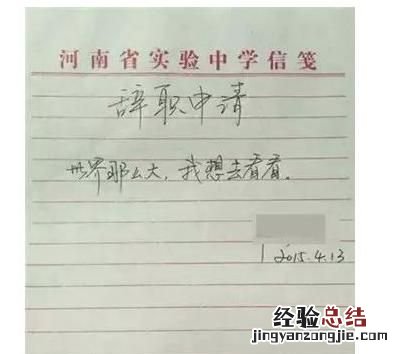 河南省实验中学信笺
辞职申请
世界那么大，我想去看看。
2015.4.13
经验总结
jingyanzongjie.com